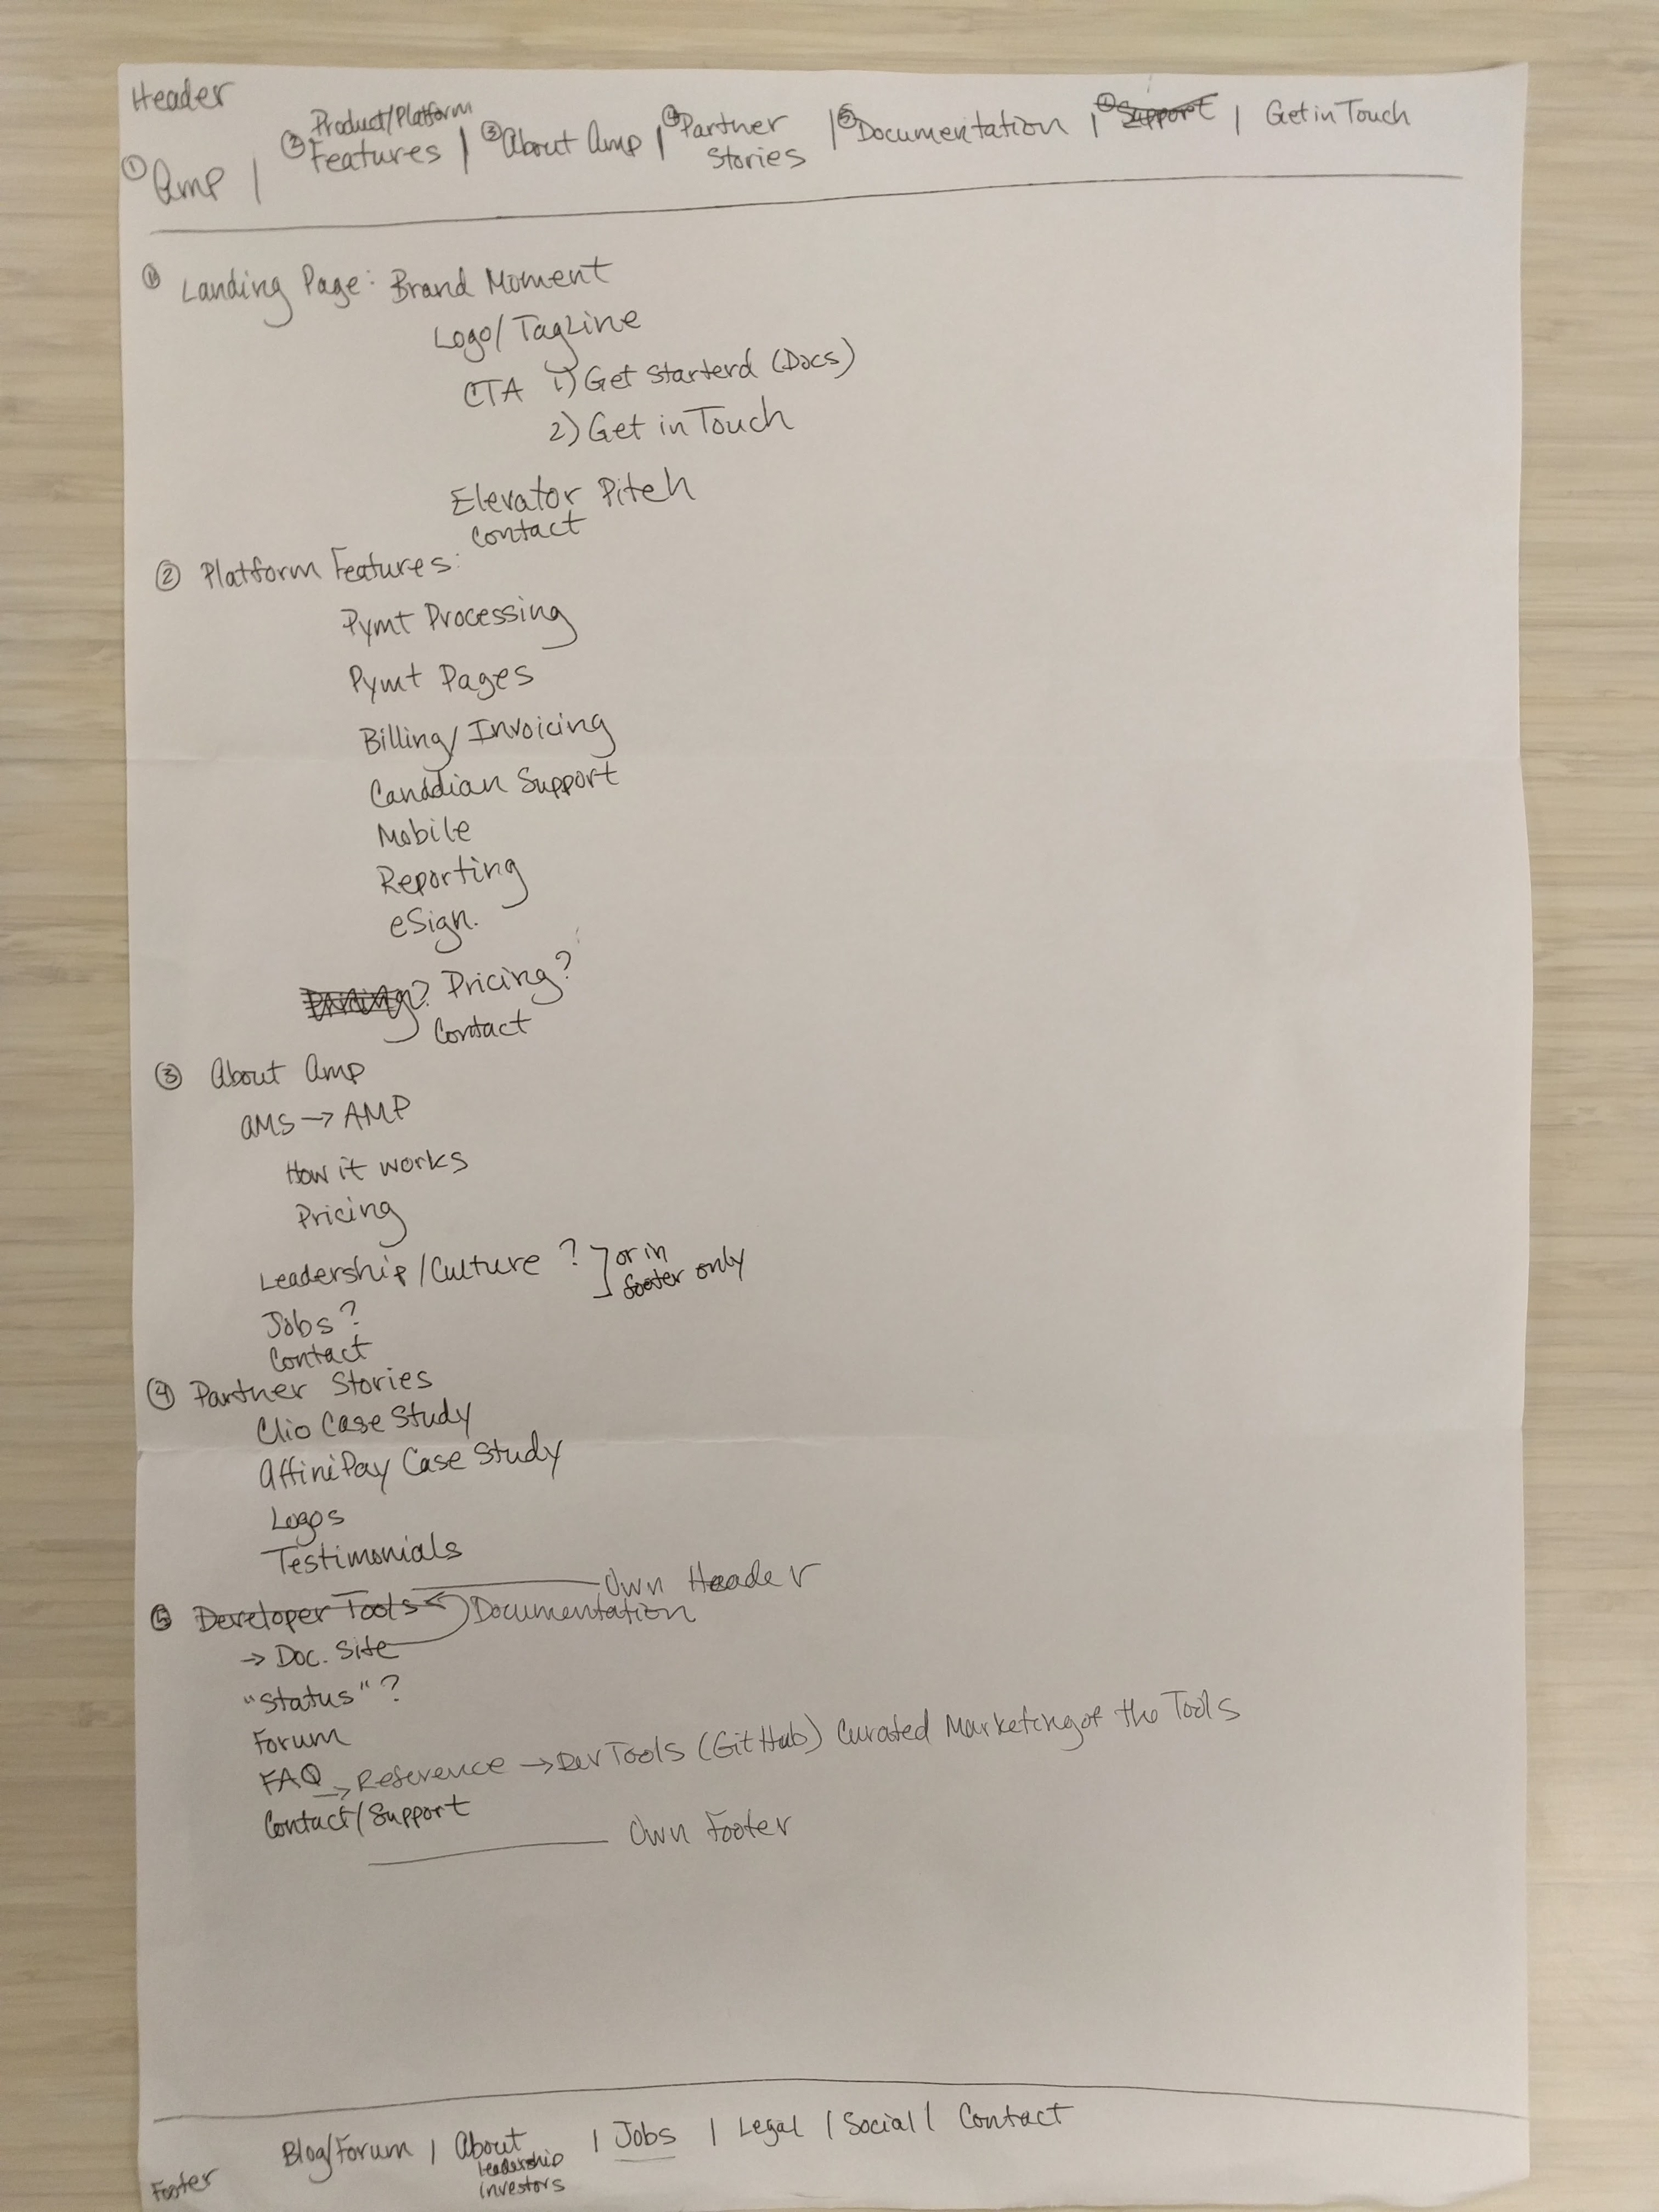 Header
① Amp | ② Product/Platform Features | ③ About Amp | ④ Partner Stories | ⑤ Documentation | Support | Get in Touch
① Landing Page: Brand Moment
Logo/TagLine
CTA 1) Get Starterd (Docs)
2) Get in Touch
Elevator Pitch
Contact
② Platform Features:
Pymt Processing
Pymt Pages
Billing/Invoicing
Canddian Support
Mobile
Reporting
eSign.
Pricing? Pricing?
Contact
③ About Amp
AMS → AMP
How it works
Pricing
Leadership/Culture ? ] or in
footer only
Jobs?
Contact
④ Partner Stories
Clio Case Study
AffiniPay Case Study
Logos
Testimonials
Own Header
⑤ Developer Tools Documentation
→ Doc. Site
"Status"?
Forum
FAQ → Reference → Dev Tools (GitHub) Curated Marketing of the Tools
Contact/Support
Own Footer
Blog/Forum | About | Jobs | Legal | Social | Contact
Leadership
Investors
Footer